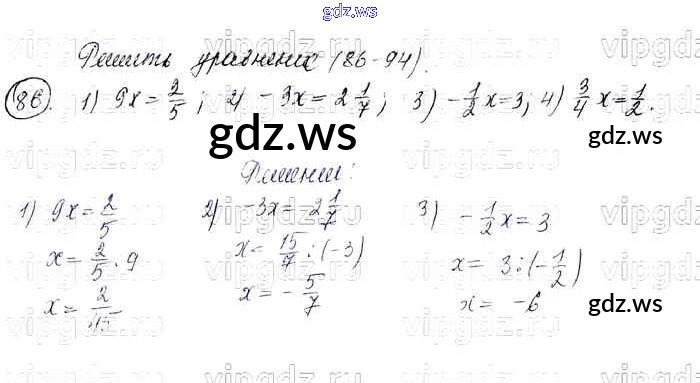 gdz.ws
Решить уравнение (86-94).
86. 1) 9x = 2/5; 2) -3x = 2 1/7; 3) -1/2 x = 3; 4) 3/4 x = 1/2.
gdz.ws
gdz.ws
Решение:
1) 9x = 2/5
x = 2/5 · 9
x = 2/45
2) -3x = 2 1/7
x = 15/7 : (-3)
x = - 5/7
3) -1/2 x = 3
x = 3 : (-1/2)
x = -6
gdz.ws